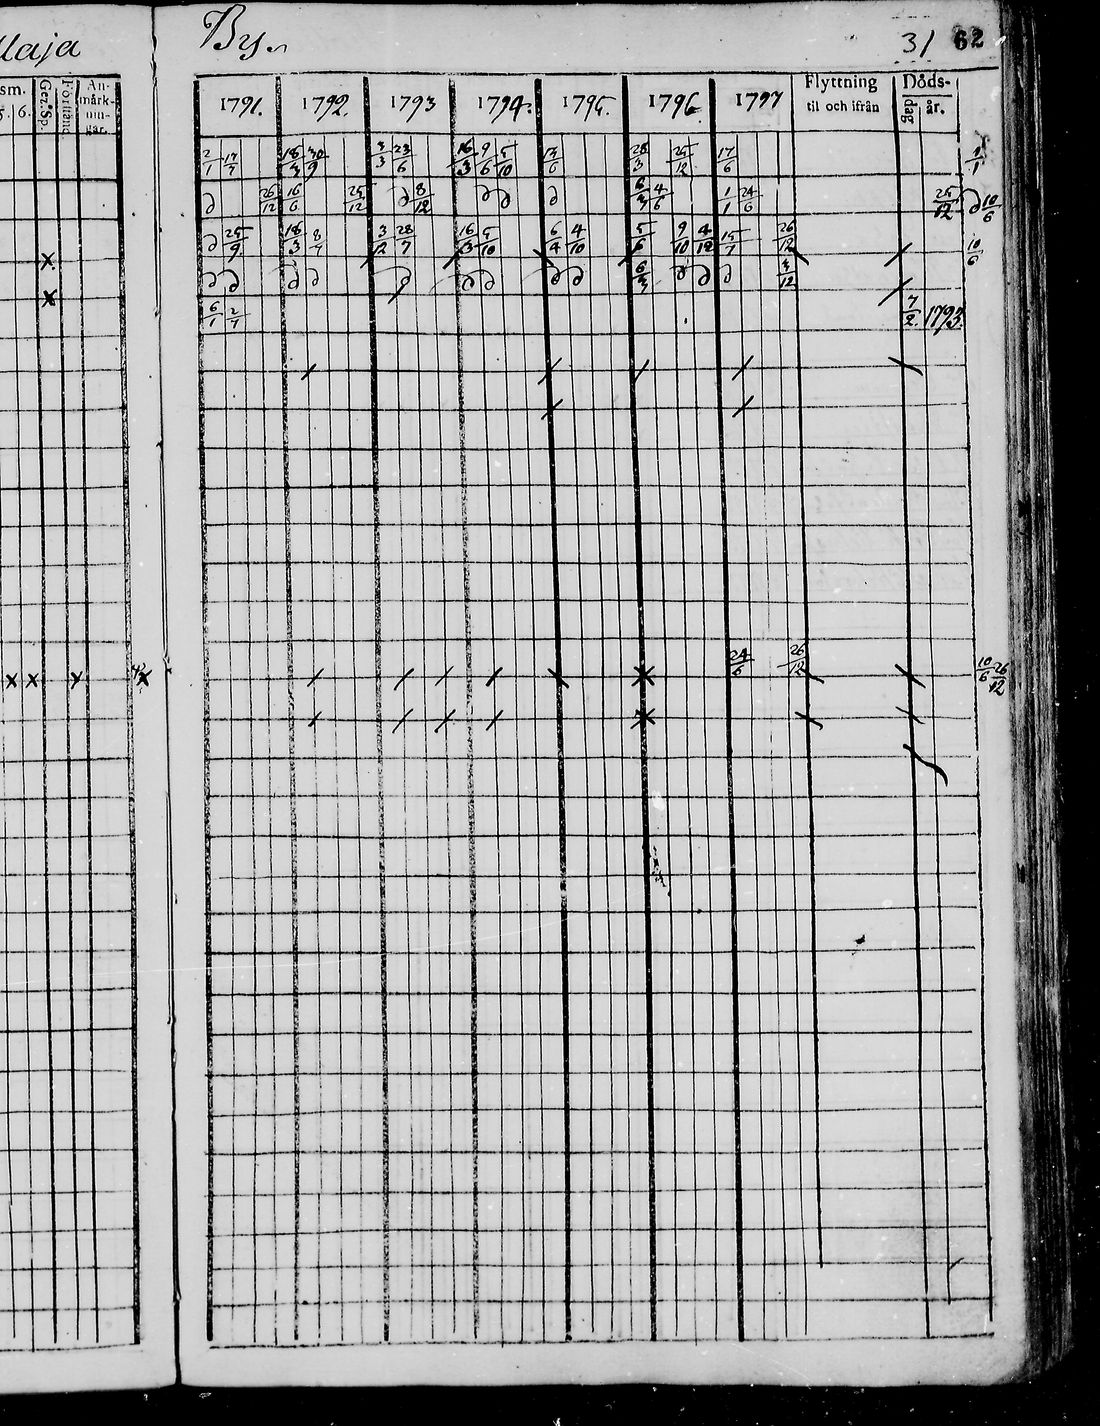 Maja By. 31 62
sm. Ger. Sp. Förstånd. An-märk-nin-gar.
5. 6.
1791. 1792. 1793 1794. 1795. 1796. 1797 Flyttning til och ifrån Döds- dag år.
2/1 17/7 18/3 30/9 3/3 23/6 16/3 9/6 5/10 28/3 25/12 17/6 1/1
26/12 16/6 25/12 8/12 6/3 4/6 1/1 24/6 25/12 10/6
25/9 18/3 8/7 3/12 28/7 16/3 5/10 6/4 4/10 5/6 9/10 4/12 15/7 26/12 10/6
x
x 6/3 3/12
6/1 2/7 7/2 1793.
x x x 24/6 26/12 10/6 26/12